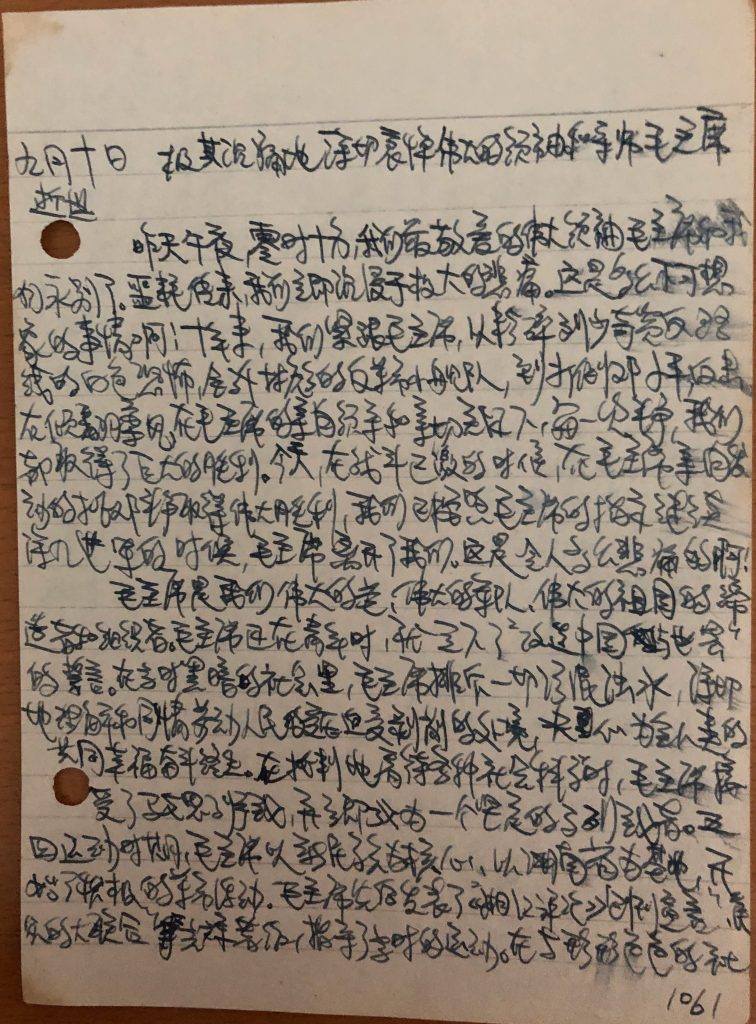 九月十日 极其沉痛地深切哀悼伟大的领袖和导师毛主席
逝世
昨天午夜零时十分,我们最敬爱的伟大领袖毛主席和我
们永别了。噩耗传来,我们立即沉浸于极大的悲痛。这是多么不可想
象的事情啊!十年来,我们紧跟毛主席,从粉碎刘少奇资反路
线的白色恐怖,
在毛主席的亲自领导和亲切关怀下,每一次斗争,我们
都取得了巨大的胜利。今天,在战斗已激的时候,在毛主席亲自发
动的批邓斗争取得伟大胜利,我们已按照毛主席的指示继续
深入进军的时候,毛主席离开了我们。这是令人多么悲痛的啊!
毛主席是我们伟大的党、伟大的军队、伟大的祖国的缔
造者和组织者。毛主席还在青年时,就立下了“改造中国与世界”
的誓言。在当时黑暗的社会里,毛主席排斥一切污泥浊水,深切
地理解和同情劳动人民的受压迫受剥削的处境,决心为全人类的
共同幸福奋斗终生。在批判地看待各种社会科学时,毛主席接
受了马克思主义,并立即成为一个坚定的马列主义者。五
四运动时期,毛主席以新民学会为核心,以湖南为基地,开
始了积极的革命活动。毛主席先后发表了《湘江评论》创刊宣言、“民
众的大联合”等光辉著作,指导了当时的运动。在与形形色色的社
1061